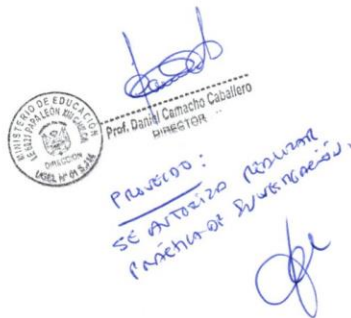 MINISTERIO DE EDUCACIÓN
DIRECCION
Prof. Daniel Camacho Caballero
DIRECTOR
PROVEIDO:
SE AUTORIZO REALIZAR
PRÁCTICA DE INVESTIGACIÓN.